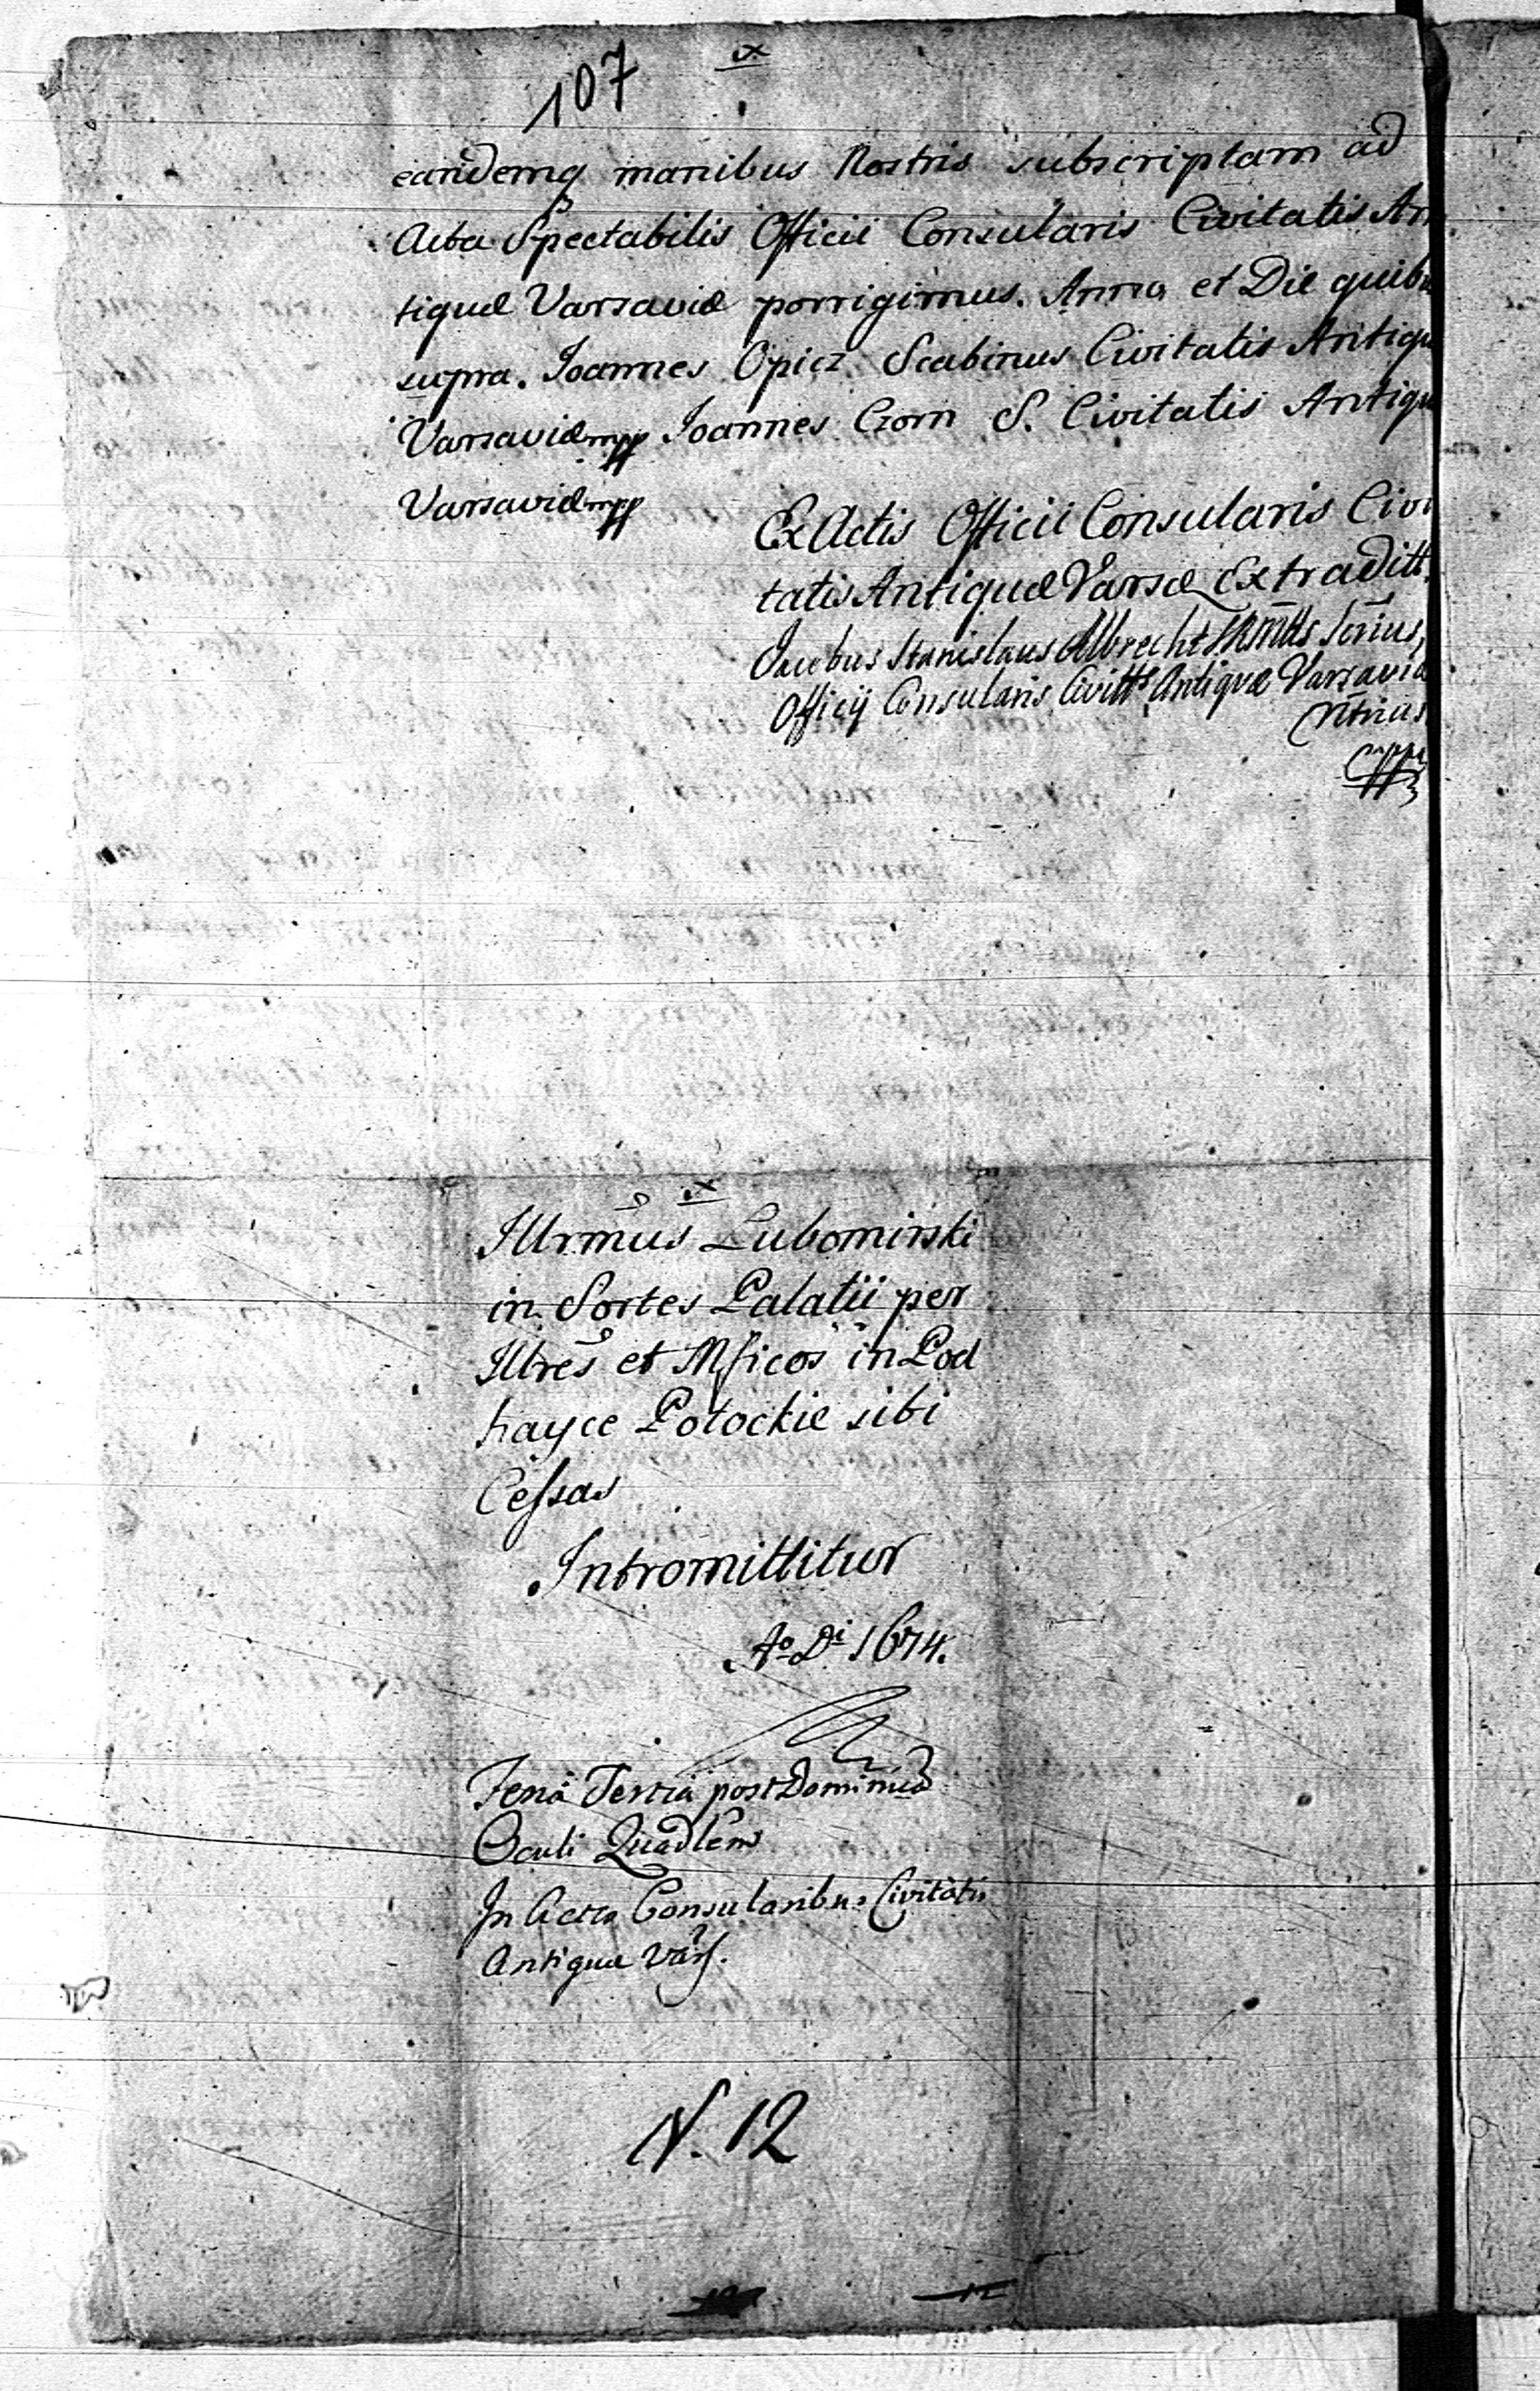 107
eandemq manibus Nostris subscriptam ad
Acta Spectabilis Officii Consularis Civitatis An
tiquæ Varsaviæ porrigimus. Anno et Die quibu
supra. Joannes Opicz Scabinus Civitatis Antiqu
Varsaviæ mpp Joannes Czorn S. Civitatis Antiqu
Varsaviæ mpp
Ex Actis Officii Consularis Civi
tatis Antiquæ Varsæ Extraditt.
Jacobus Stanislaus Albrecht
Officÿ Consularis Civitts Antiquæ Varsaviæ
Ntrius
mpp
Illrmus Lubomirski
in Sortes Palatii per
Illres et Mficos in Pod
hayce Potockie sibi
Cessas
Intromittitur
Ao Di 1674.
Feria Tertia post Dominica
Oculi Quadlem
In Actis Consularibus Civitatis
Antiquæ Vars.
N. 12
12